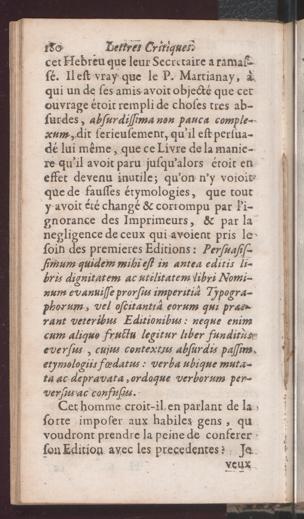 180 Lettres Critiques.
cet Hebreu que leur Secretaire a ramas-
sé. Il est vray que le P. Martianay, à
qui un de ses amis avoit objecté que cet
ouvrage étoit rempli de choses tres ab-
surdes, absurdissima non pauca comple-
xum, dit serieusement, qu'il est persua-
dé lui même, que ce Livre de la manie-
re qu'il avoit paru jusqu'alors étoit en
effet devenu inutile; qu'on n'y voioit
que de fausses étymologies, que tout
y avoit été changé & corrompu par l'i-
gnorance des Imprimeurs, & par la
negligence de ceux qui avoient pris le
soin des premieres Editions: Persuasis-
simum quidem mihi est in antea editis li-
bris dignitatem ac utilitatem libri Nomi-
num evanuisse prorsus imperitiâ Typogra-
phorum, vel oscitantiâ eorum qui præe-
rant veteribus Editionibus: neque enim
cum aliquo fructu legitur liber funditus
eversus, cujus contextus absurdis passim
etymologiis fœdatus: verba ubique muta-
ta ac depravata, ordoque verborum per-
versus ac confusus.
Cet homme croit-il en parlant de la
sorte imposer aux habiles gens, qui
voudront prendre la peine de conferer
son Edition avec les precedentes? Je
veux